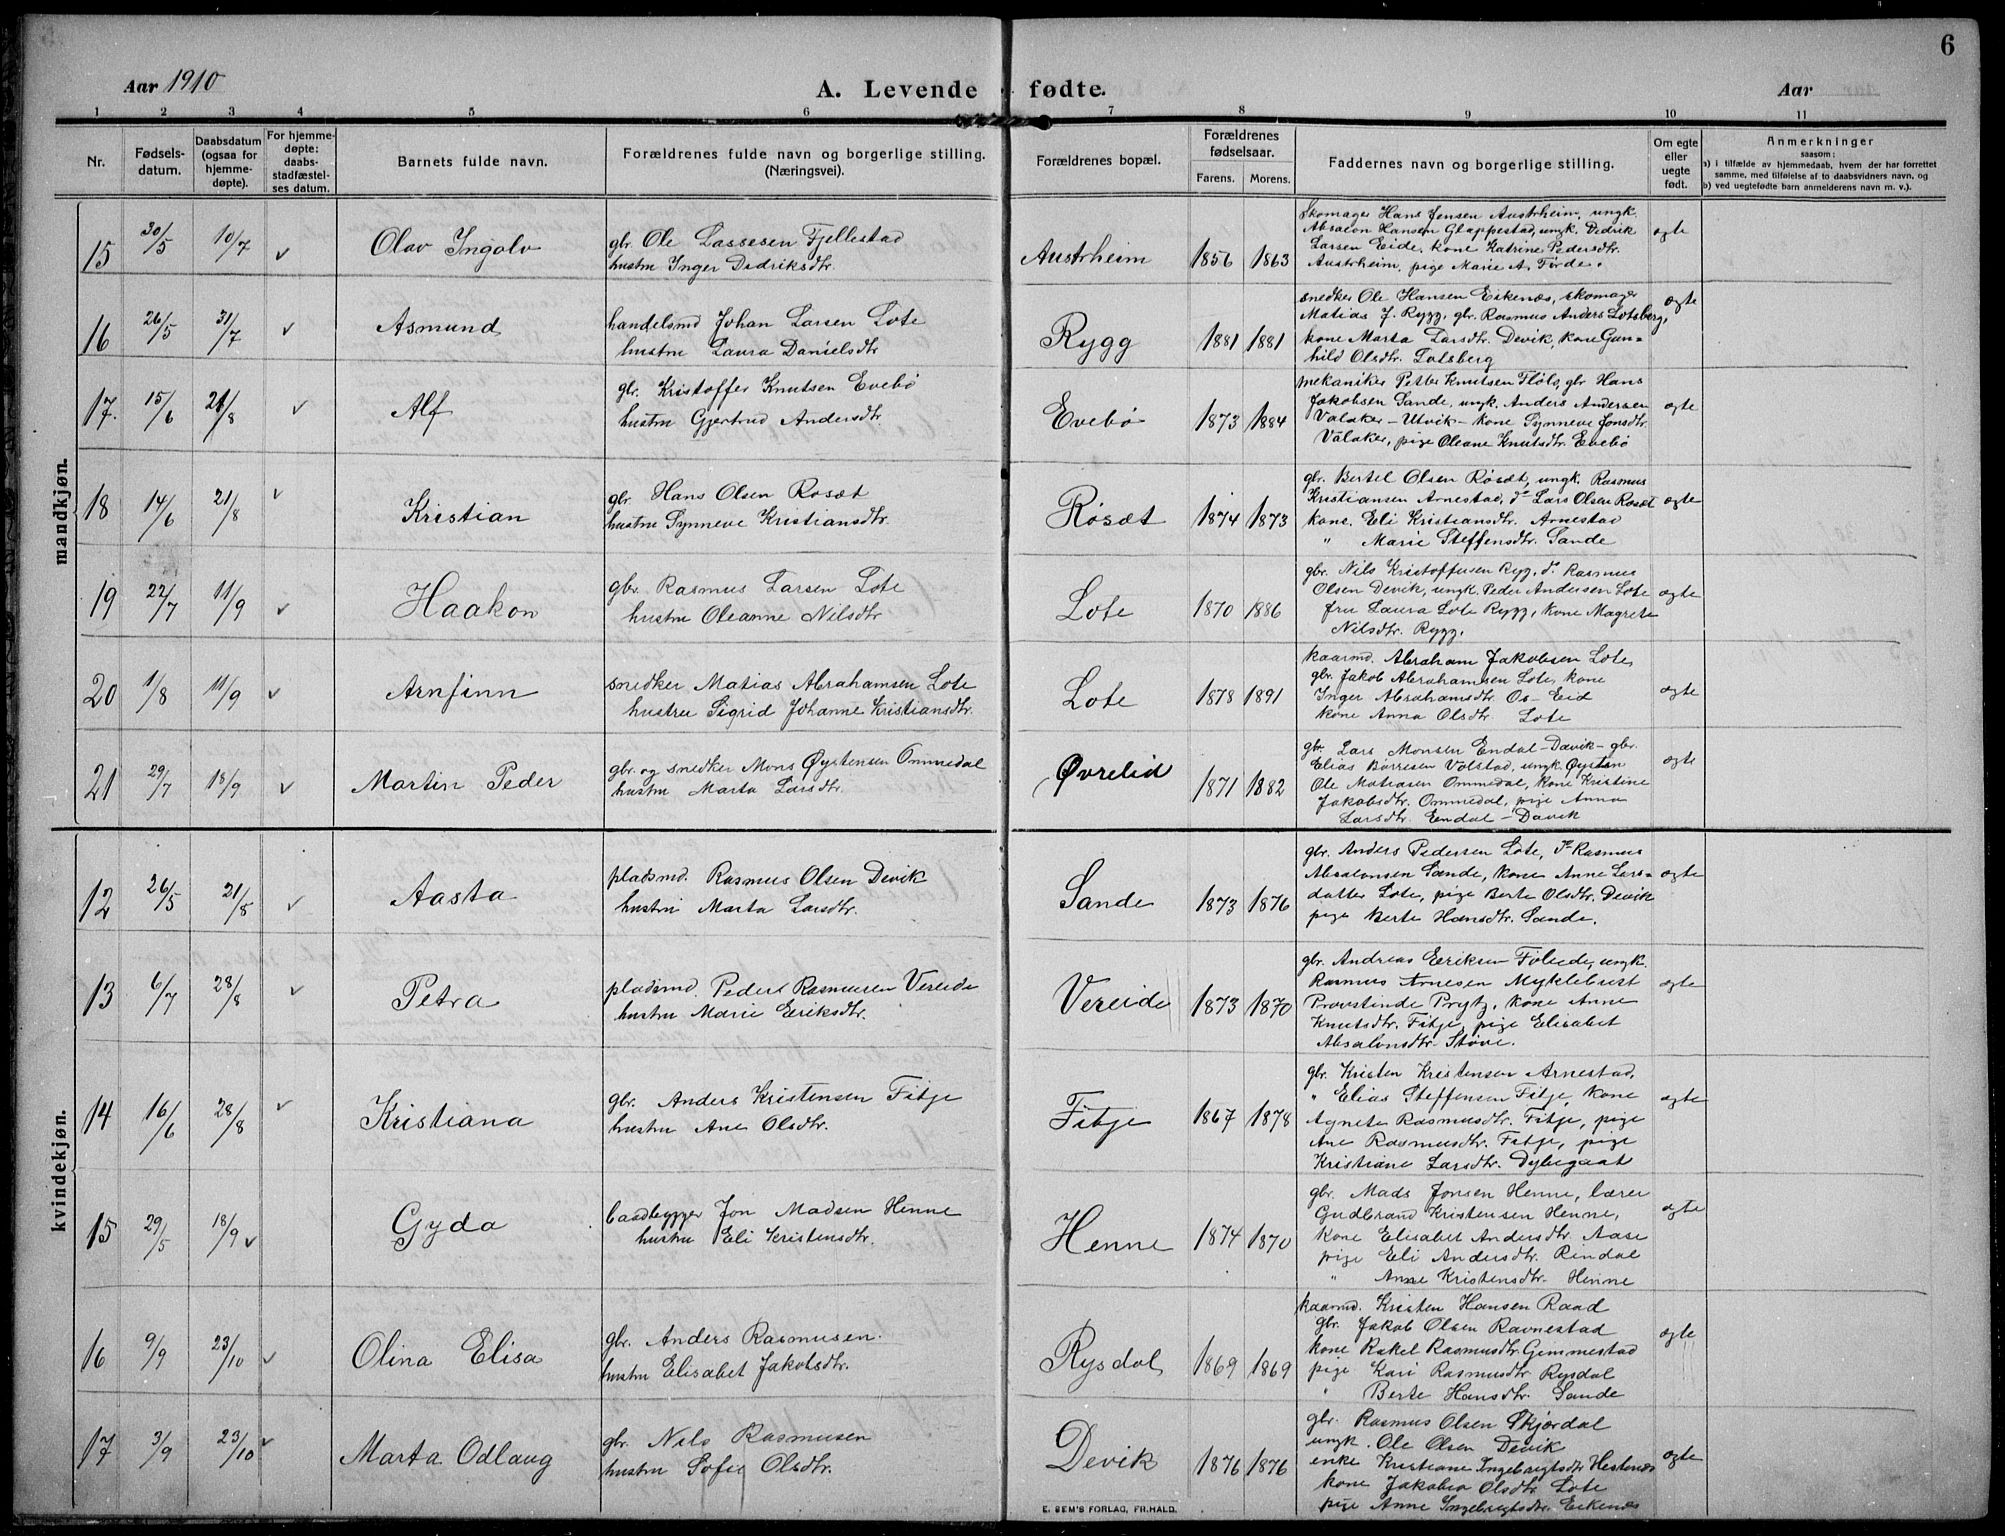 6
Aar 1910
A. Levende fødte.
Aar
1 2 3 4 5 6 7 8 9 10 11
Nr.
Fødsels-
datum.
Daabsdatum
(ogsaa for
hjemme-
døpte).
For hjemme-
døpte:
daabs-
stadfæstel-
ses datum.
Barnets fulde navn.
Forældrenes fulde navn og borgerlige stilling.
(Næringsvei).
Forældrenes bopæl.
Forældrenes
fødselsaar.
Farens. Morens.
Faddernes navn og borgerlige stilling.
Om egte
eller
uegte
født.
Anmerkninger
saasom:
a) i tilfælde av hjemmedaab, hvem der har forrettet
samme, med tilføielse af to daabsvidners navn, og
b) ved uegtefødte barn anmelderens navn m. v.).
mandkjøn.
15 30/5 10/7 ✓ Olav Ingolv
gbr. Ole Lassesen Fjellestad
hustru Inger Didriksdtr.
Austrheim 1856 1863
Skomager Hans Jensen Austrheim, ungk.
Absalon Hansen Glappestad, ungk. Didrik
Larsen Eide, kone Katrine Pedersdtr.
Austrheim, pige Marie A. Førde.
egte
16 26/5 31/7 ✓ Asmund
handelsmd Johan Larsen Lote
hustru Laura Danielsdtr
Rygg 1881 1881
snedker Ole Hansen Eikenæs, skomager
Matias J. Rygg, gbr. Rasmus Anders Lotsberg,
kone Marta Larsdtr. Devik, kone Gun-
hild Olsdtr. Lotsberg
egte
17. 15/6 21/8 ✓ Alf
gbr. Kristoffer Knutsen Evebø
hustru Gjertrud Andersdtr.
Evebø 1873 1884
mekaniker Petter Knutsen Flølo, gbr Hans
Jakobsen Sande, ungk. Anders Andersen
Valaker - Utvik - kone Synneve Jonsdtr.
Valaker, pige Oleane Knutsdtr. Evebø
egte
18 14/6 21/8 ✓ Kristian
gbr. Hans Olsen Rosæt
hustru Synneve Kristiansdtr.
Røsæt 1874 1873
gbr. Bertel Olsen Røsæt, ungk. Rasmus
Kristiansen Arnestad, do Lars Olsen Rosæt
kone. Eli Kristiansdtr. Arnestad
" Marie Steffensdtr. Sande
egte
19 22/7 11/9 ✓ Haakon
gbr. Rasmus Larsen Lote
hustru Oleanne Nilsdtr
Lote 1870 1886
gbr. Nils Kristoffersen Ryg, do. Rasmus
Olsen Devik, ungk. Peder Andersen Lote
fru Laura Lote Rygg, kone Magrete
Nilsdtr. Rygg.
egte
20 1/8 11/9 ✓ Arnfinn
snedker Matias Abrahamsen Lote
hustru Sigrid Johanne Kristiansdtr.
Lote 1878 1891
kaarmd. Abraham Jakobsen Lote,
gbr. Jakob Abrahamsen Lote, kone
Inger Abrahamsdtr Os - Eid
kone Anna Olsdtr. Lote
egte
21 29/7 18/9 ✓ Martin Peder
gbr. og snedker Mons Øystensen Ommedal
hustru Marta Larsdtr.
Øvrelid 1871 1882
gbr. Lars Monsen Endal - Davik - gbr.
Elias Børresen Volstad, ungk Øysten
Ole Matiasen Ommedal, kone Kristine
Jakobsdtr. Ommedal, pige Anna
Larsdtr. Endal - Davik
egte
kvindekjøn.
12 26/5 21/8 ✓ Aasta
pladsmd. Rasmus Olsen Devik
hustru Marta Larsdtr.
Sande 1873 1876
gbr. Anders Pedersen Lote, do Rasmus
Absalonsen Sande, kone Anne Lars-
datter Lote, pige Berte Olsdtr. Devik
pige Berte Hansdtr. Sande.
egte
13 6/7 28/8 ✓ Petra
pladsmd. Peder Rasmussen Vereide
hustru Marie Eriksdtr.
Vereide 1873 1870
gbr. Andreas Eriksen Føleide, ungk.
Rasmus Arnesen Myklebust
Provstinde Prytz, kone Anne
Knutsdtr. Fitje, pige Elisabet
Absalonsdtr Støve.
egte
14 16/6 28/8 ✓ Kristiana
gbr. Anders Kristensen Fitje
hustru Ane Olsdtr.
Fitje 1867 1878
gbr. Kristen Kristensen Arnestad,
" Elias Steffensen Fitje, kone
Agnete Rasmusdtr. Fitje, pige
Ane Rasmusdtr. Fitje, pige
Kristiane Larsdtr. Dybegaat
egte
15 29/5 18/9 ✓ Gyda
baadbygger Jon Madsen Henne
hustru Eli Kristensdtr.
Henne 1874 1870
gbr. Mads Jonsen Henne, lærer
Gudbrand Kristensen Henne,
kone Elisabet Andersdtr Aase
pige Eli Andersdtr. Rindal
" Anne Kristensdtr. Henne
egte
16 9/9 23/10 ✓ Olina Elisa
gbr. Anders Rasmusen.
hustru Elisabet Jakobsdtr.
Rysdal 1869 1869
kaarmd. Kristen Hansen Raad
gbr. Jakob Olsen Ravnestad
kone Rakel Rasmusdtr Gimmestad
pige Kari Rasmusdtr Rysdal
" Berte Hansdtr. Sande
egte
17 3/9 23/10 ✓ Marta Odlaug
gbr. Nils Rasmusen
hustru Sofie Olsdtr.
Devik 1876 1876
gbr. Rasmus Olsen Skjørdal
ungk. Ole Olsen Devik
enke Kristiane Ingebrigtsdtr Hestenæs
kone Jakobia Olsdtr Lote
pige Anne Ingebrigtsdtr. Eikenæs
egte
E. SEM'S FORLAG, FR.HALD.